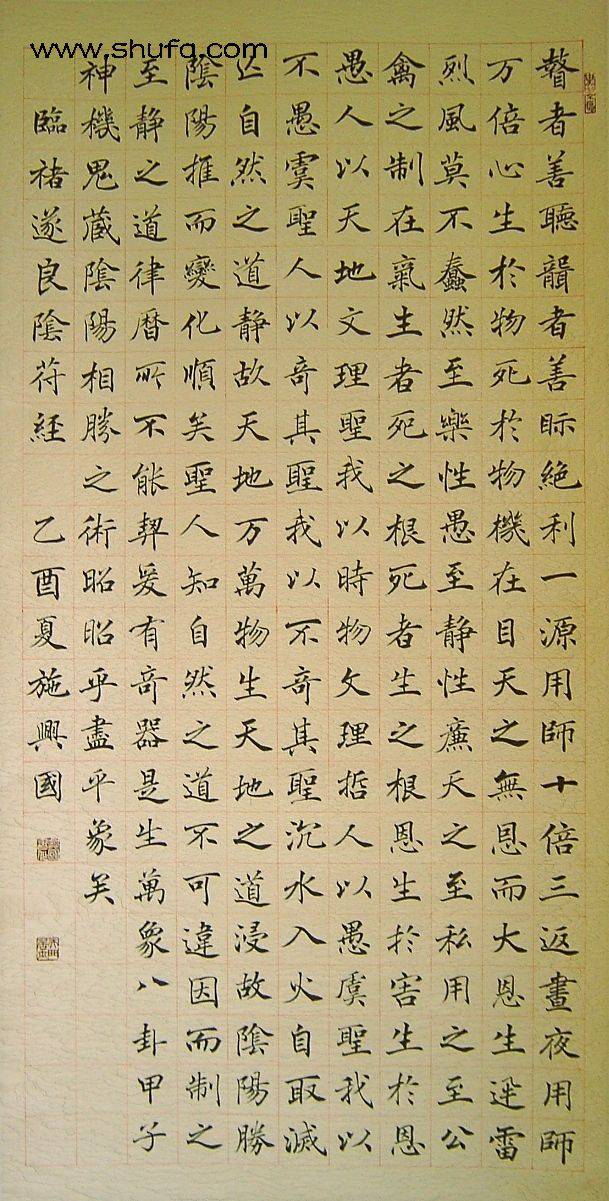 www.shufa.com
瞽者善聽聾者善眎絕利一源用師十倍三返晝夜用師
万倍心生於物死於物機在目天之無恩而大恩生迅雷
烈風莫不蠢然至樂性愚至静性廉天之至私用之至公
禽之制在氣生者死之根死者生之根恩生於害生於恩
愚人以天地文理聖我以時物文理哲人以愚虞聖我以
不愚虞聖人以奇其聖我以不奇其聖沉水入火自取滅
亡自然之道静故天地万萬物生天地之道浸故陰陽勝
陰陽推而變化順矣聖人知自然之道不可違因而制之
至静之道律曆所不能契爰有奇器是生萬象八卦甲子
神機鬼藏陰陽相勝之術昭昭乎盡乎象矣
臨褚遂良陰符經 乙酉夏施興國